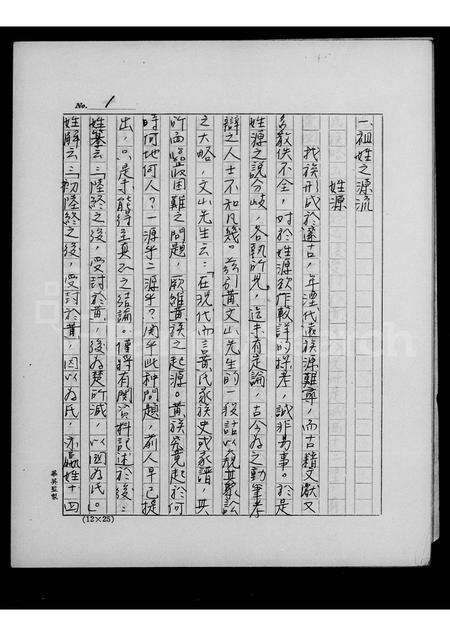 No. 1
一、祖姓之源流
姓源
我族形氏於遠古,年湮代遠族源難尋,而古籍文獻又
多散佚不全,對於姓源欲作較詳的探考,誠非易事。於是
姓源之說分岐,各執所見,迄未有定論,古今為之動筆考
辯之人士不知凡幾。茲引黃文山先生的一段話以窺其聚訟
之大略,文山先生云:「在現代而言黃氏家族史或家譜,其
所面臨最困難之問題,厥維黃族之起源。黃族究竟起於何
時何地何人?一源乎二源乎?關乎此種問題,前人早已提
出,只是未能得至真正之結論。僅將有關資料記述於後:
姓纂云:『陸終之後,受封於黃,後為楚所滅,以國為氏。』
姓解云:『陸終之後,受封於黃,因以為氏,亦嬴姓十四
(12×25)